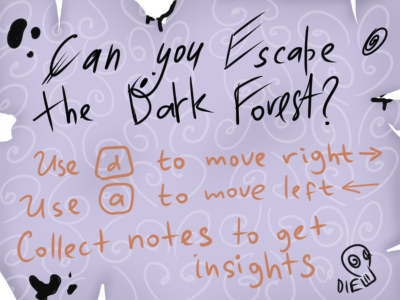 Can you Escape
the Dark Forest?
Use d to move right →
Use a to move left ←
Collect notes to get
insights
DIE